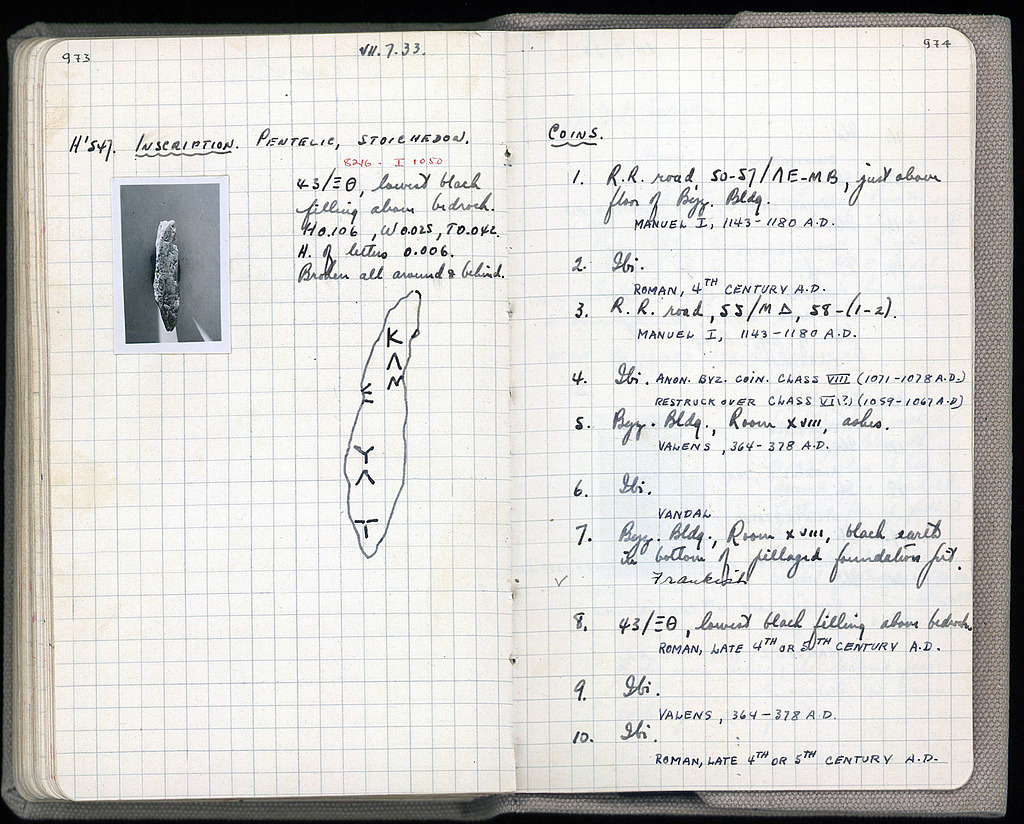 973
VII.7.33.
H'547. INSCRIPTION. PENTELIC, STOICHEDON.
8246 - I 1050
43/ΞΘ, lowest black
filling above bedrock.
H 0.106, W 0.025, T 0.042.
H. of letters 0.006.
Broken all around & behind.
Κ
Λ
Ν
Ε
Υ
Λ
Τ
974
COINS.
1. R.R. road, 50-57/ΛΕ-ΜΒ, just above
floor of Byz. Bldg.
MANUEL I, 1143-1180 A.D.
2. Ibi.
ROMAN, 4TH CENTURY A.D.
3. R.R. road, 55/ΜΔ, 58-(1-2).
MANUEL I, 1143-1180 A.D.
4. Ibi. ANON. BYZ. COIN. CLASS VIII (1071-1078 A.D.)
RESTRUCK OVER CLASS VI(?) (1059-1067 A.D)
5. Byz. Bldg., Room XVIII, ashes.
VALENS, 364-378 A.D.
6. Ibi.
VANDAL
7. Byz. Bldg., Room XVIII, black earth
in bottom of pillaged foundation pit.
Frankish
8. 43/ΞΘ, lowest black filling above bedrock.
ROMAN, LATE 4TH OR 5TH CENTURY A.D.
9. Ibi.
VALENS, 364-378 A.D.
10. Ibi.
ROMAN, LATE 4TH OR 5TH CENTURY A.D.